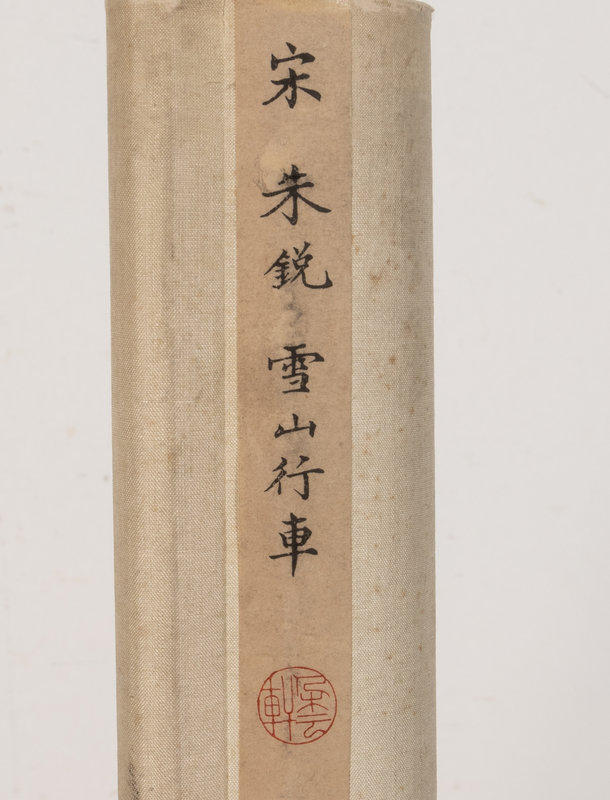 宋 朱鋭 雪山行車